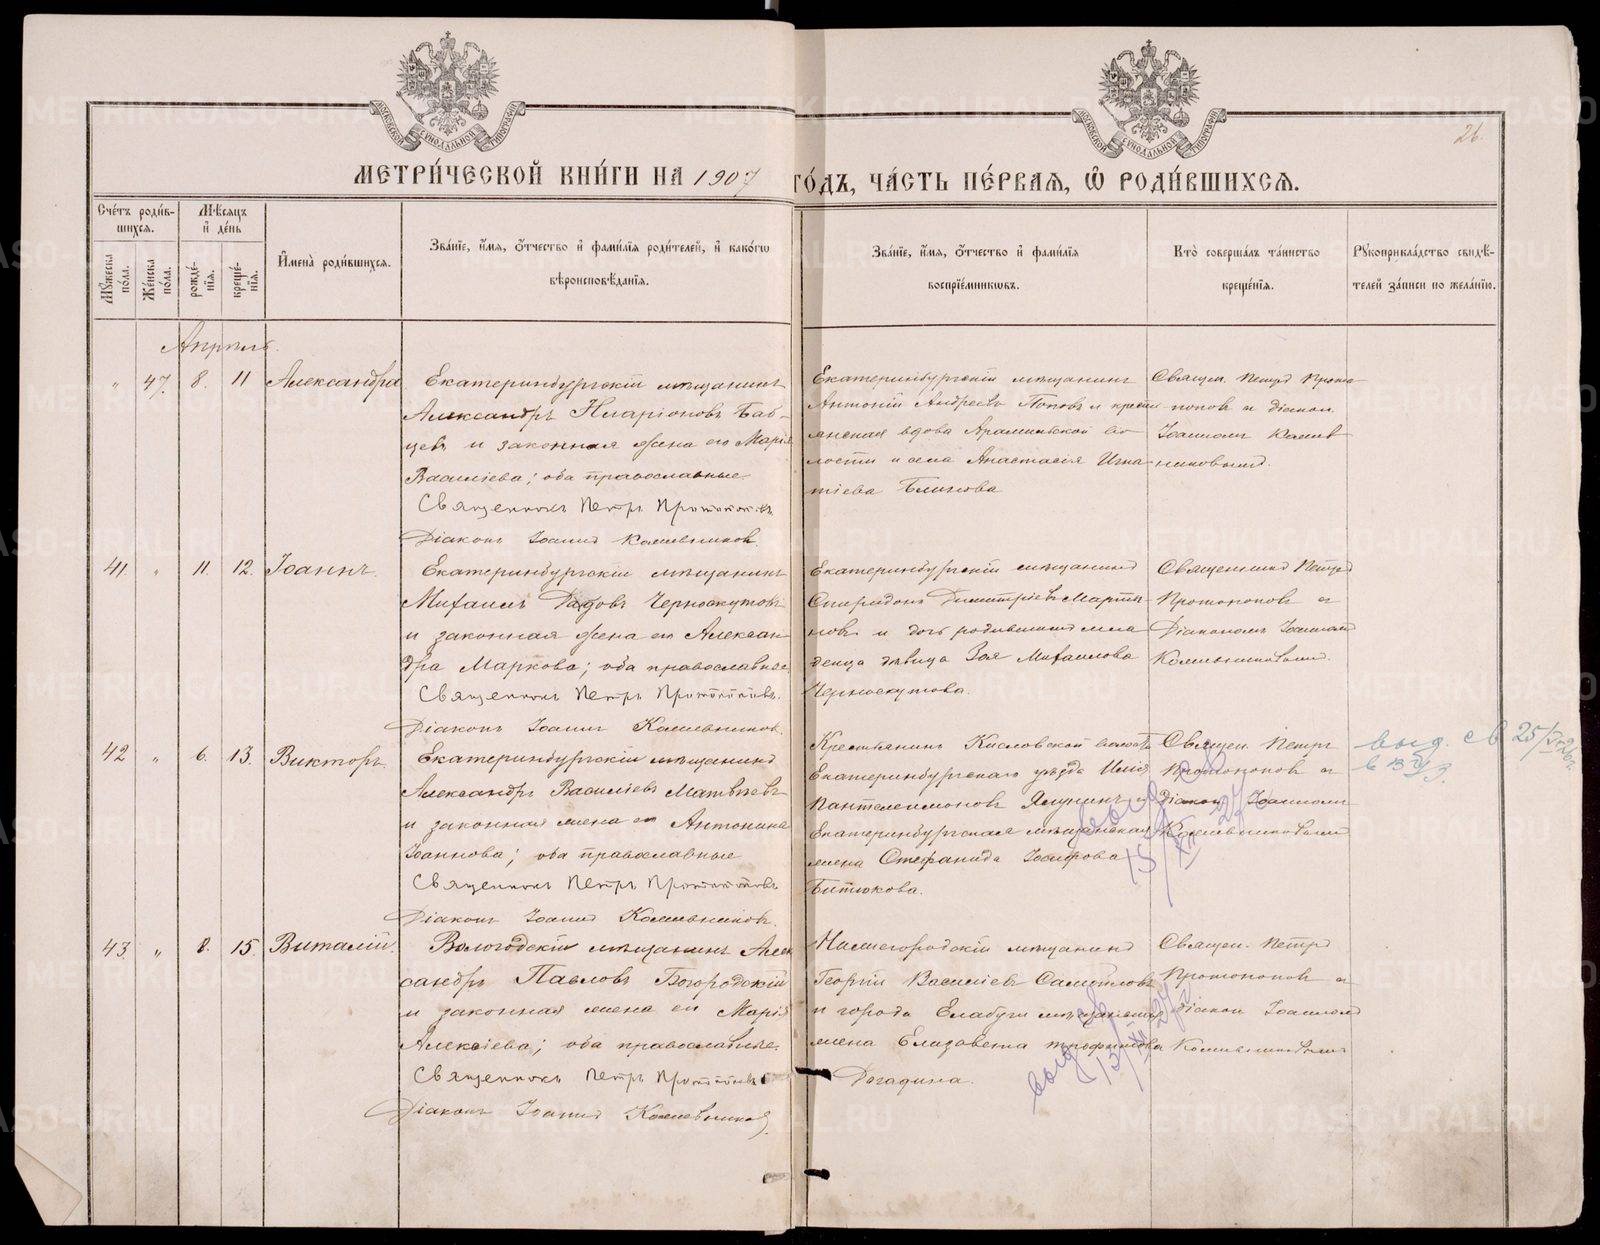 МЕТРИ́ЧЕСКОЙ КНИ́ГИ НА 1907 ГО́ДЪ, ЧА́СТЬ ПЕ́РВАЯ, Ѡ РОДИ́ВШИХСЯ.
26.
Сче́тъ роди́в-
шихся.
Мꙋ́жеска по́ла.
Же́нска по́ла.
Мѣ́сяцъ и де́нь
рожде́-
нїя.
креще́-
нїя.
Имена̀ роди́вшихся.
Зва́нїе, и́мя, о́тчество и фами́лїя роди́телей, и како́гѡ
вѣроисповѣ́данїя.
Зва́нїе, и́мя, о́тчество и фами́лїя
воспрїе́мникѡвъ.
Кто̀ соверша́лъ та́инство
креще́нїя.
Рꙋкоприкла́дство свидѣ́-
телей за́писи по жела́нїю.
Апрѣль.
" 47. 8. 11 Александра
Екатеринбургскій мѣщанинъ
Александръ Иларіоновъ Баб-
цевъ и законная жена его Марія
Василіева; оба православные.
Священникъ Петръ Протопоповъ
Діаконъ Іоаннъ
Екатеринбургскій мѣщанинъ
Антоній Андреевъ Поповъ и кресть-
янская вдова Арамильской во-
лости и села Анастасія Игна-
тіева Блинова
Священ. Петръ Прото-
попов и діакон
Іоанном
41. " 11. 12. Іоаннъ
Екатеринбургскій мѣщанинъ
Михаилъ Черноскутовъ
и законная жена его Алексан-
дра Маркова; оба православные
Священникъ Петръ Протопоповъ.
Діаконъ Іоаннъ
Екатеринбургскій мѣщанинъ
Спиридонъ Димитріевъ Марты-
новъ и дочь родившаго мла-
денца дѣвица Зоя Михаилова
Черноскутова.
Священник Петръ
Протопопов и
Діаконом Іоанном
42 " 6. 13. Викторъ
Екатеринбургскій мѣщанинъ
Александръ Василіевъ Матвѣевъ
и законная жена его Антонина
Іоаннова; оба православные
Священникъ Петръ Протопоповъ
Діаконъ Іоаннъ
Крестьянинъ Кисловской волости
Екатеринбургскаго уѣзда Илія
Пантелеимоновъ Ялунинъ и
Екатеринбургская мѣщанская
жена Стефанида Іосифова
Битюкова.
Священ. Петръ
Протопопов и
діакон Іоанном
выд. св 25/
43. " 8. 15. Виталій.
Вологодскій мѣщанинъ Алек-
сандръ Павловъ Богородскій
и законная жена его Марія
Алексіева; оба православные.
Священникъ Петръ Протопоповъ
Діаконъ Іоаннъ
Нижегородскій мѣщанинъ
Георгій Василіевъ Самойловъ
и города Елабуги мѣщанская
жена Елизавета Трофимова
Догадина.
Священ. Петръ
Протопопов и
діакон Іоанном